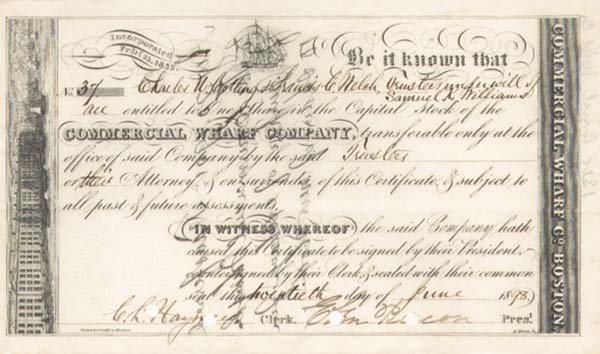 Incorporated
Feb. 22. 1833.
Be it known that
No. 37 Charles U. Cotting & Francis C. Welch Trustees under will of
Samuel K. Williams
are entitled to one Share in the Capital Stock of the
COMMERCIAL WHARF COMPANY, transferable only at the
office of said Company by the said Trustees
or their Attorney & on surrender of this Certificate & subject to
all past & future assessments.
IN WITNESS WHEREOF the said Company hath
caused this Certificate to be signed by their President,
countersigned by their Clerk, & sealed with their common
seal this twentieth day of June 1898.
Clerk. Pres.
COMMERCIAL WHARF Co. BOSTON.